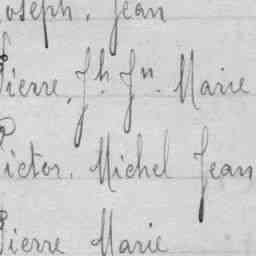 Joseph, Jean
Pierre, Jh. Jn. Marie
Victor, Michel Jean
Pierre Marie